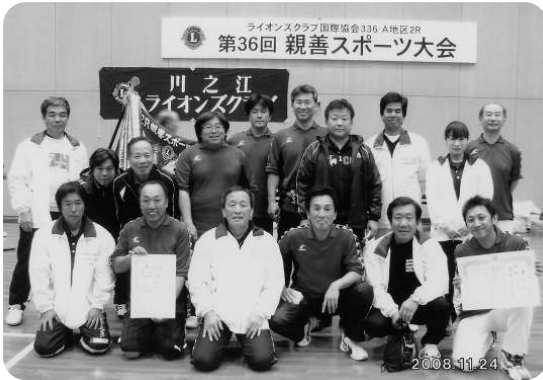 ライオンズクラブ国際協会336-A地区2R
第36回 親善スポーツ大会
川之江
ライオンズクラブ
2008.11.24